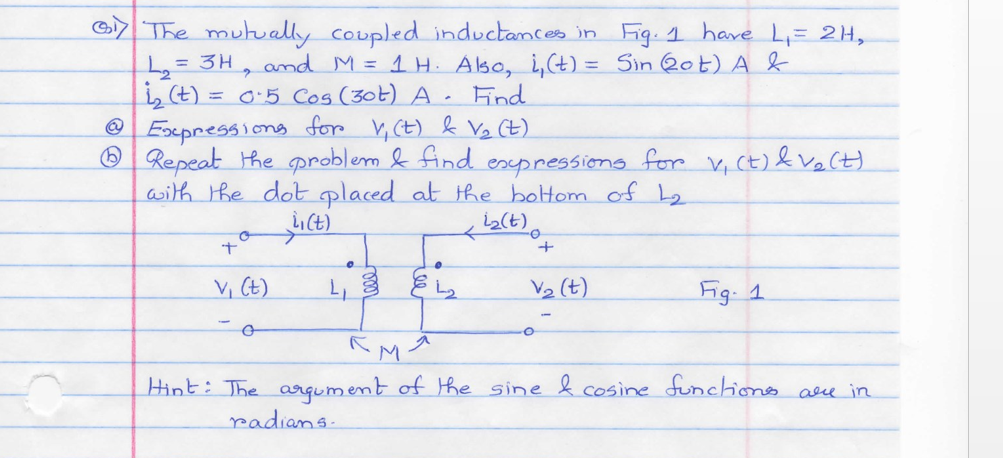 Q1) The mutually coupled inductances in Fig. 1 have L₁ = 2H,
L₂ = 3H, and M = 1 H. Also, i₁(t) = Sin (20t) A &
i₂(t) = 0.5 Cos (30t) A. Find
(a) Expressions for V₁(t) & V₂(t)
(b) Repeat the problem & find expressions for V₁(t) & V₂(t)
with the dot placed at the bottom of L₂
i₁(t) i₂(t)
+ +
V₁(t) L₁ L₂ V₂(t) Fig. 1
- -
M
Hint: The argument of the sine & cosine functions are in
radians.